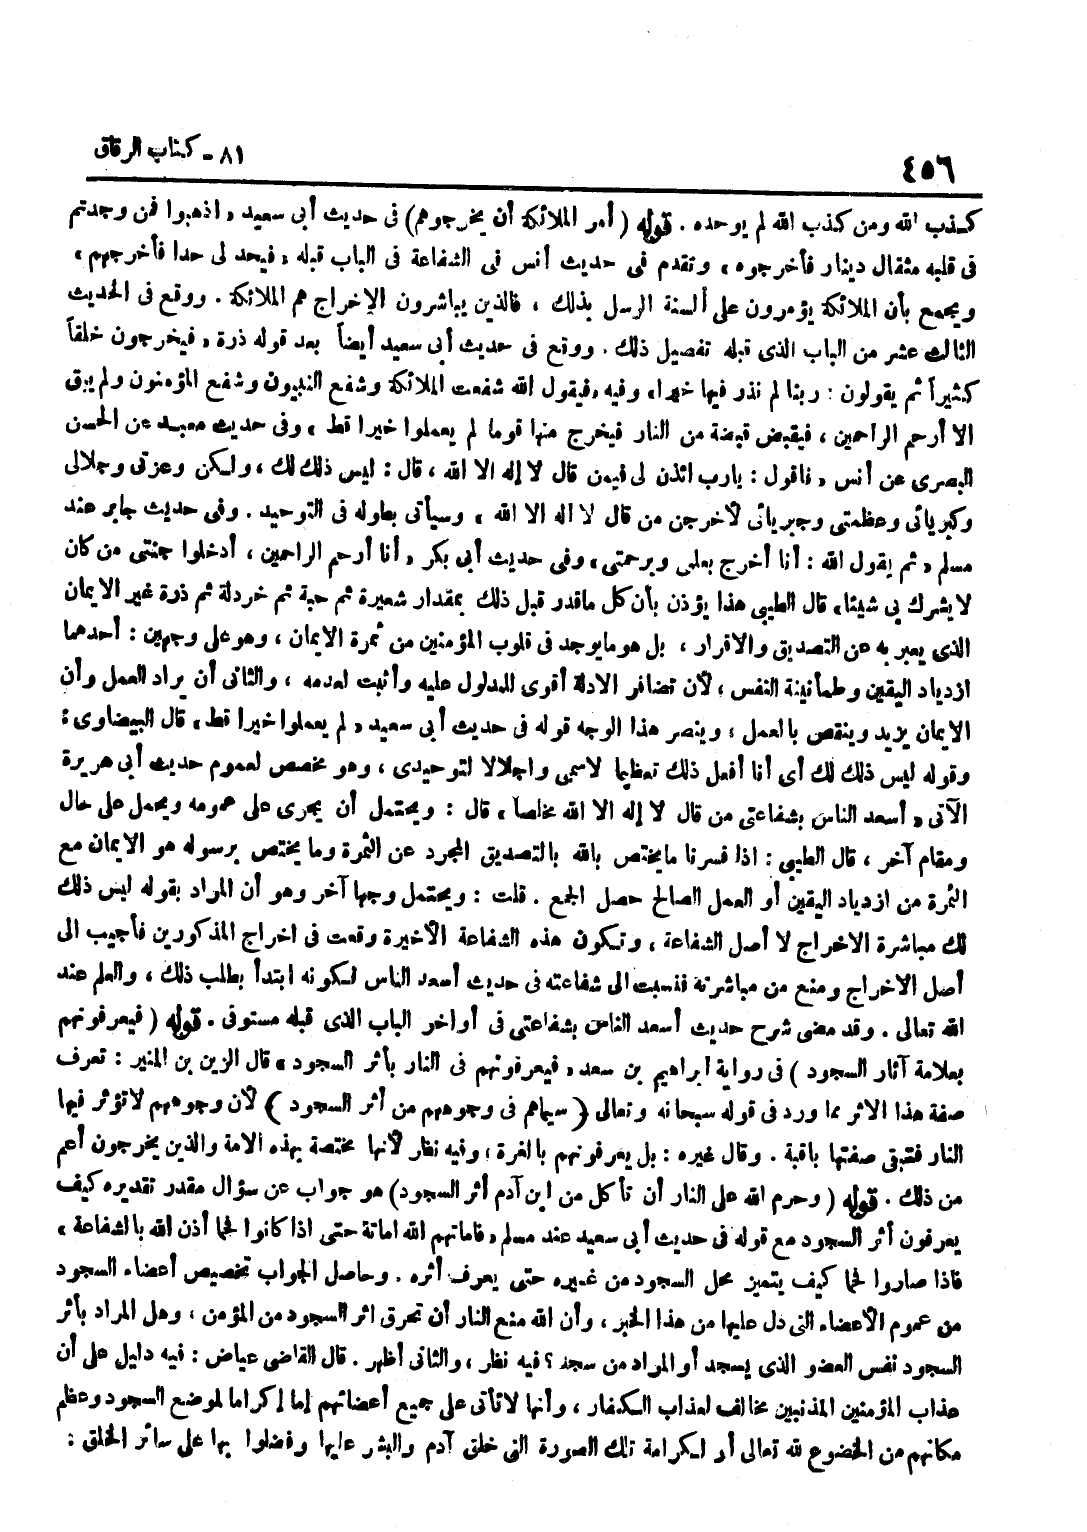 ٨١ - كتاب الرقاق
٤٥٦
كذب الله ومن كذب الله لم يوحده . قوله ( أمر الملائكة أن يخرجوهم ) فى حديث أبى سعيد « اذهبوا فمن وجدتم
فى قلبه مثقال دينار فأخرجوه » وتقدم فى حديث أنس فى الشفاعة فى الباب قبله « فيحد لى حدا فأخرجهم »
ويجمع بأن الملائكة يؤمرون على ألسنة الرسل بذلك ، فالذين يباشرون الإخراج هم الملائكة . ووقع فى الحديث
الثالث عشر من الباب الذى قبله تفصيل ذلك . ووقع فى حديث أبى سعيد أيضاً بعد قوله ذرة « فيخرجون خلقاً
كثيراً ثم يقولون : ربنا لم نذر فيها خيرا » وفيه « فيقول الله شفعت الملائكة وشفع النبيون وشفع المؤمنون ولم يبق
الا أرحم الراحمين ، فيقبض قبضة من النار فيخرج منها قوما لم يعملوا خيرا قط » وفى حديث معبد عن الحسن
البصرى عن أنس « فاقول : يارب ائذن لى فيمن قال لا إله الا الله ، قال : ليس ذلك لك ، ولكن وعزتى وجلالى
وكبريائى وعظمتى وجبريائى لأخرجن من قال لا اله الا الله » وسيأتى بطوله فى التوحيد . وفى حديث جابر عند
مسلم « ثم يقول الله : أنا أخرج بعلمى وبرحمتى » وفى حديث أبى بكر « أنا أرحم الراحمين ، أدخلوا جنتى من كان
لا يشرك بى شيئا » قال الطيبى هذا يؤذن بأن كل ماقدر قبل ذلك بمقدار شعيرة ثم حبة ثم خردلة ثم ذرة غير الايمان
الذى يعبر به عن التصديق والاقرار ، بل هو مايوجد فى قلوب المؤمنين من ثمرة الايمان ، وهو على وجهين : أحدهما
ازدياد اليقين وطمأنينة النفس ، لأن تضافر الادلة أقوى للمدلول عليه وأثبت لعدمه ، والثانى أن يراد العمل وأن
الايمان يزيد وينقص بالعمل ، وينصر هذا الوجه قوله فى حديث أبى سعيد « لم يعملوا خيرا قط » قال البيضاوى :
وقوله ليس ذلك لك أى أنا أفعل ذلك تعظيما لاسمى واجلالا لتوحيدى ، وهو مخصص لعموم حديث أبى هريرة
الآتى « أسعد الناس بشفاعتى من قال لا إله الا الله مخلصا » قال : ويحتمل أن يجرى على عمومه ويحمل على حال
ومقام آخر ، قال الطيبى : اذا فسرنا مايختص بالله بالتصديق المجرد عن الثمرة وما يختص برسوله هو الايمان مع
الثمرة من ازدياد اليقين أو العمل الصالح حصل الجمع . قلت : ويحتمل وجها آخر وهو أن المراد بقوله ليس ذلك
لك مباشرة الاخراج لا أصل الشفاعة ، وتكون هذه الشفاعة الأخيرة وقعت فى اخراج المذكورين فأجيب الى
أصل الاخراج ومنع من مباشرته فنسبت الى شفاعته فى حديث أسعد الناس لكونه ابتدأ بطلب ذلك ، والعلم عند
الله تعالى . وقد مضى شرح حديث أسعد الناس بشفاعتى فى أواخر الباب الذى قبله مستوفى . قوله ( فيعرفونهم
بعلامة آثار السجود ) فى رواية ابراهيم بن سعد « فيعرفونهم فى النار بأثر السجود » قال الزين بن المنير : تعرف
صفة هذا الاثر مما ورد فى قوله سبحانه وتعالى ( سيماهم فى وجوههم من أثر السجود ) لأن وجوههم لاتؤثر فيها
النار فتبقى صفتها باقية . وقال غيره : بل يعرفونهم بالغرة ، وفيه نظر لأنها مختصة بهذه الامة والذين يخرجون أعم
من ذلك . قوله ( وحرم الله على النار أن تأكل من ابن آدم أثر السجود ) هو جواب عن سؤال مقدر تقديره كيف
يعرفون أثر السجود مع قوله فى حديث أبى سعيد عند مسلم « فاماتهم الله اماتة حتى اذا كانوا فحما أذن الله بالشفاعة »
فاذا صاروا فحما كيف يتميز محل السجود من غيره حتى يعرف أثره . وحاصل الجواب تخصيص أعضاء السجود
من عموم الأعضاء التى دل عليها من هذا الخبر ، وأن الله منع النار أن تحرق اثر السجود من المؤمن ، وهل المراد بأثر
السجود نفس العضو الذى يسجد أو المراد من سجد ؟ فيه نظر ، والثانى أظهر . قال القاضى عياض : فيه دليل على أن
عذاب المؤمنين المذنبين مخالف لعذاب الكفار ، وأنها لاتأتى على جميع أعضائهم إما إكراما لموضع السجود وعظم
مكانهم من الخضوع لله تعالى أو لكرامة تلك الصورة التى خلق آدم والبشر عليها وفضلوا بها على سائر الخلق :